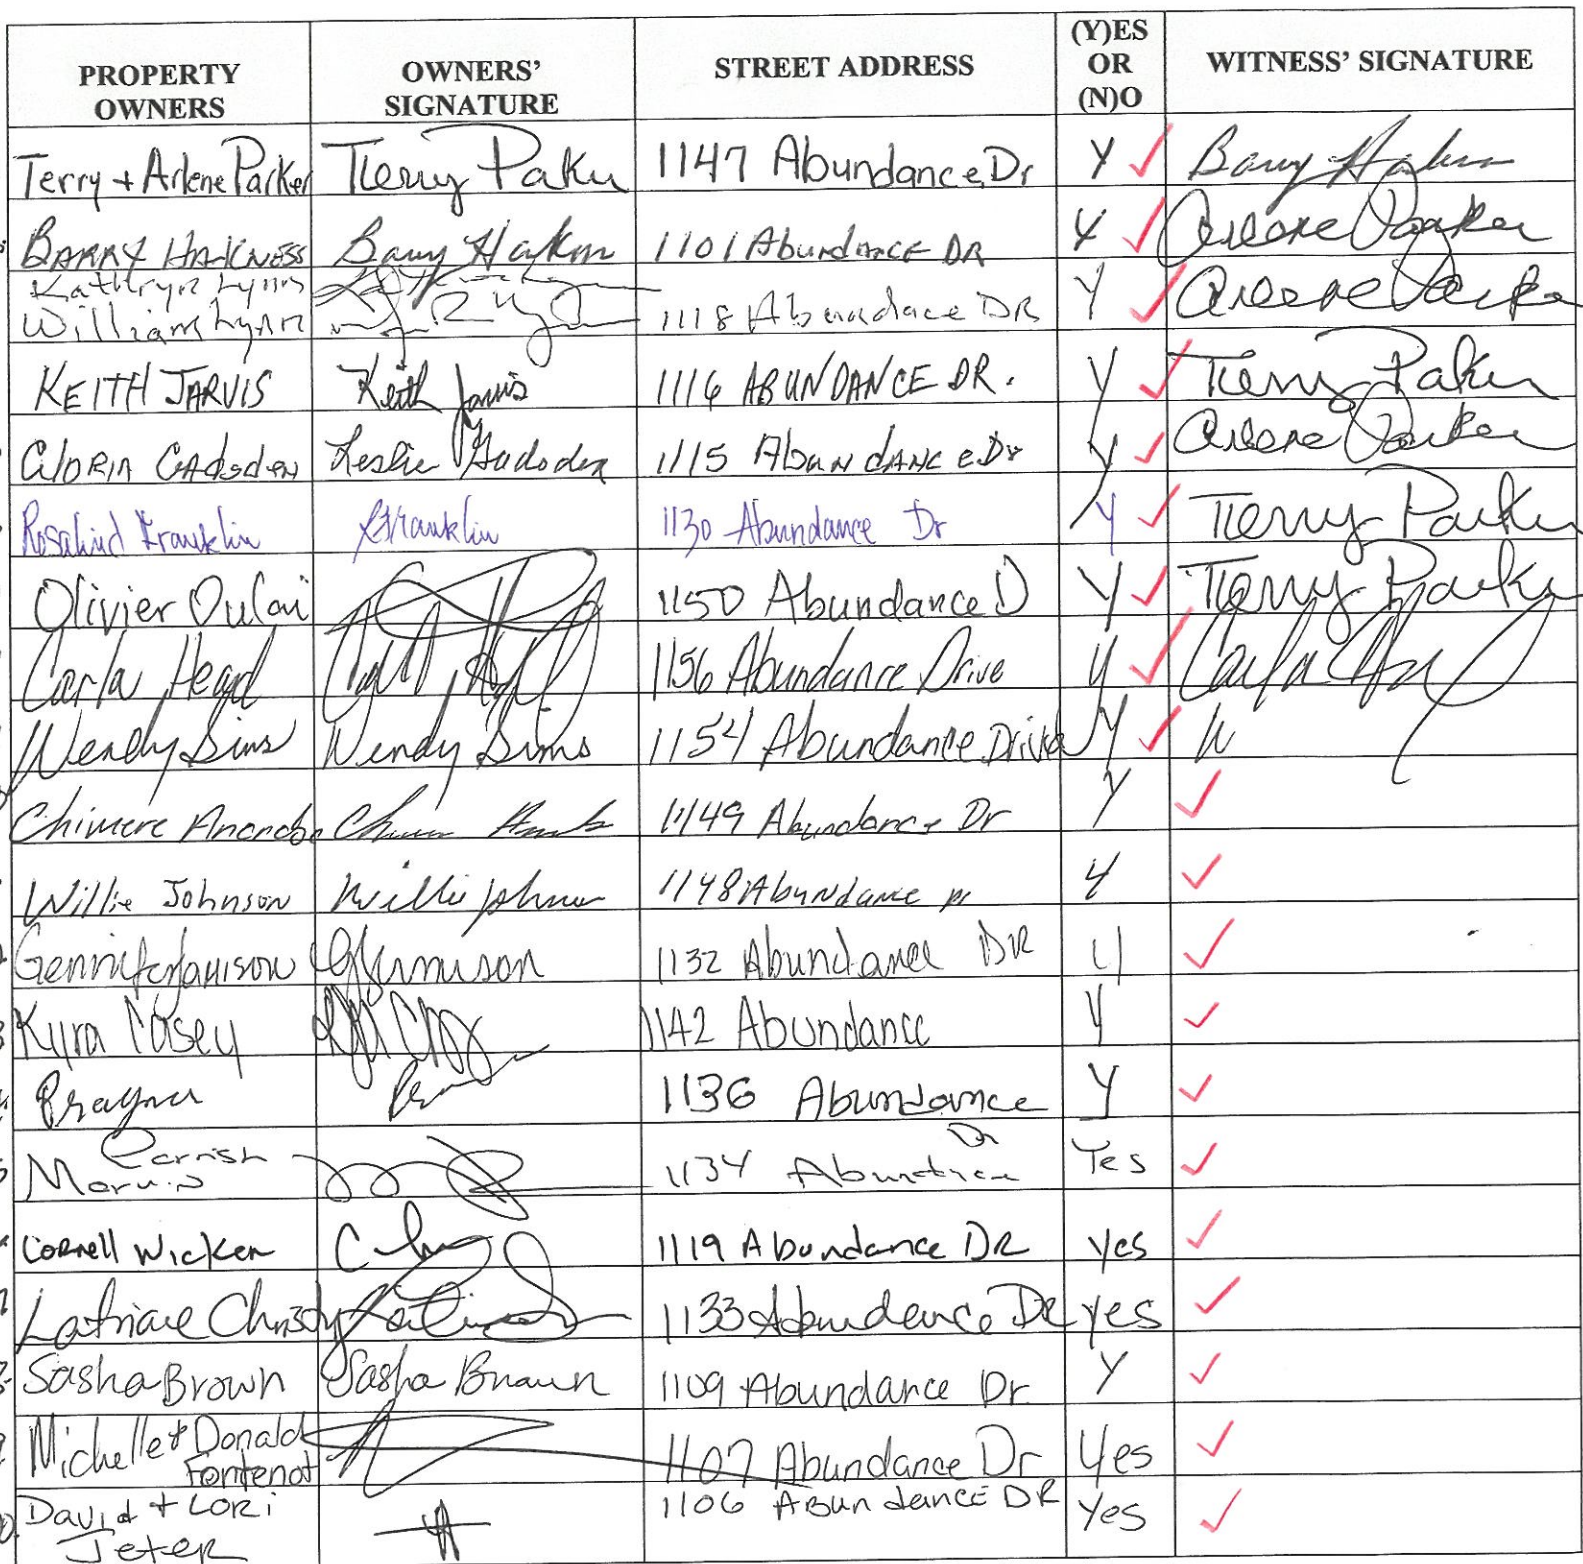 PROPERTY OWNERS OWNERS' SIGNATURE STREET ADDRESS (Y)ES OR (N)O WITNESS' SIGNATURE
Terry + Arlene Parker Terry Parker 1147 Abundance Dr Y Barry Harkness
BARRY HARKNESS Barry Harkness 1101 Abundance DR Y Arlene Parker
Kathryn Lynn
William Lynn 1118 Abundace DR Y Arlene Parker
KEITH JARVIS Keith Jarvis 1116 ABUNDANCE DR. Y Terry Parker
GloRIA GAdsden Leslie Gadsden 1115 AbundANCe Dr Y Arlene Parker
Rosalind Franklin RFranklin 1130 Abundance Dr Y Terry Parker
Olivier Oulai 1150 Abundance D Y Terry Parker
Carla Head 1156 Abundance Drive y Carla
Wendy Sims Wendy Sims 1154 Abundance Drive Y
Chimere 1149 Abundance Dr Y
Willie Johnson Willie Johnson 1148 Abundance Dr y
Gennifer Jamison GJamison 1132 Abundance DR y
Kyra Casey 1142 Abundance y
1136 Abundance Y
Marvin Parrish 1134 Dr Yes
CORNell Wicker 1119 Abundance DR yes
Latriace Christy 1133 Abundance DR yes
Sasha Brown Sasha Brown 1109 Abundance Dr. Y
Michelle & Donald Fontenot 1107 Abundance Dr Yes
David + LORI Jeter 1106 ABundance DR Yes